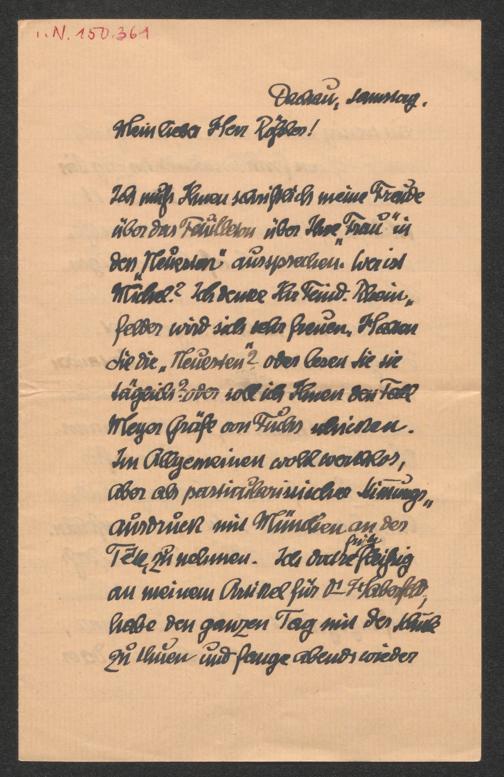 I.N. 150.361
Dachau, Samstag.
Mein lieber Herr Rößler!
Ich muß Ihnen schriftlich meine Freude
über das Feuilleton über Ihre „Frau" in
den „Neuesten" aussprechen. Wer ist
Michel? Ich denke Ihr Feind. Rhein„
felder wird sich sehr freuen. Haben
Sie die „Neuesten"? oder lesen Sie sie
täglich? oder soll ich Ihnen den Fall
Meyer Gräfe von Fuchs schicken.
Im Allgemeinen wohl wertlos,
aber als partikularistischer Stimmungs„
ausdruck mit München an der
Tête, zu nehmen. Ich fleißig
an meinem Artikel für
habe den ganzen Tag mit der Schule
zu thuen und fange abends wieder